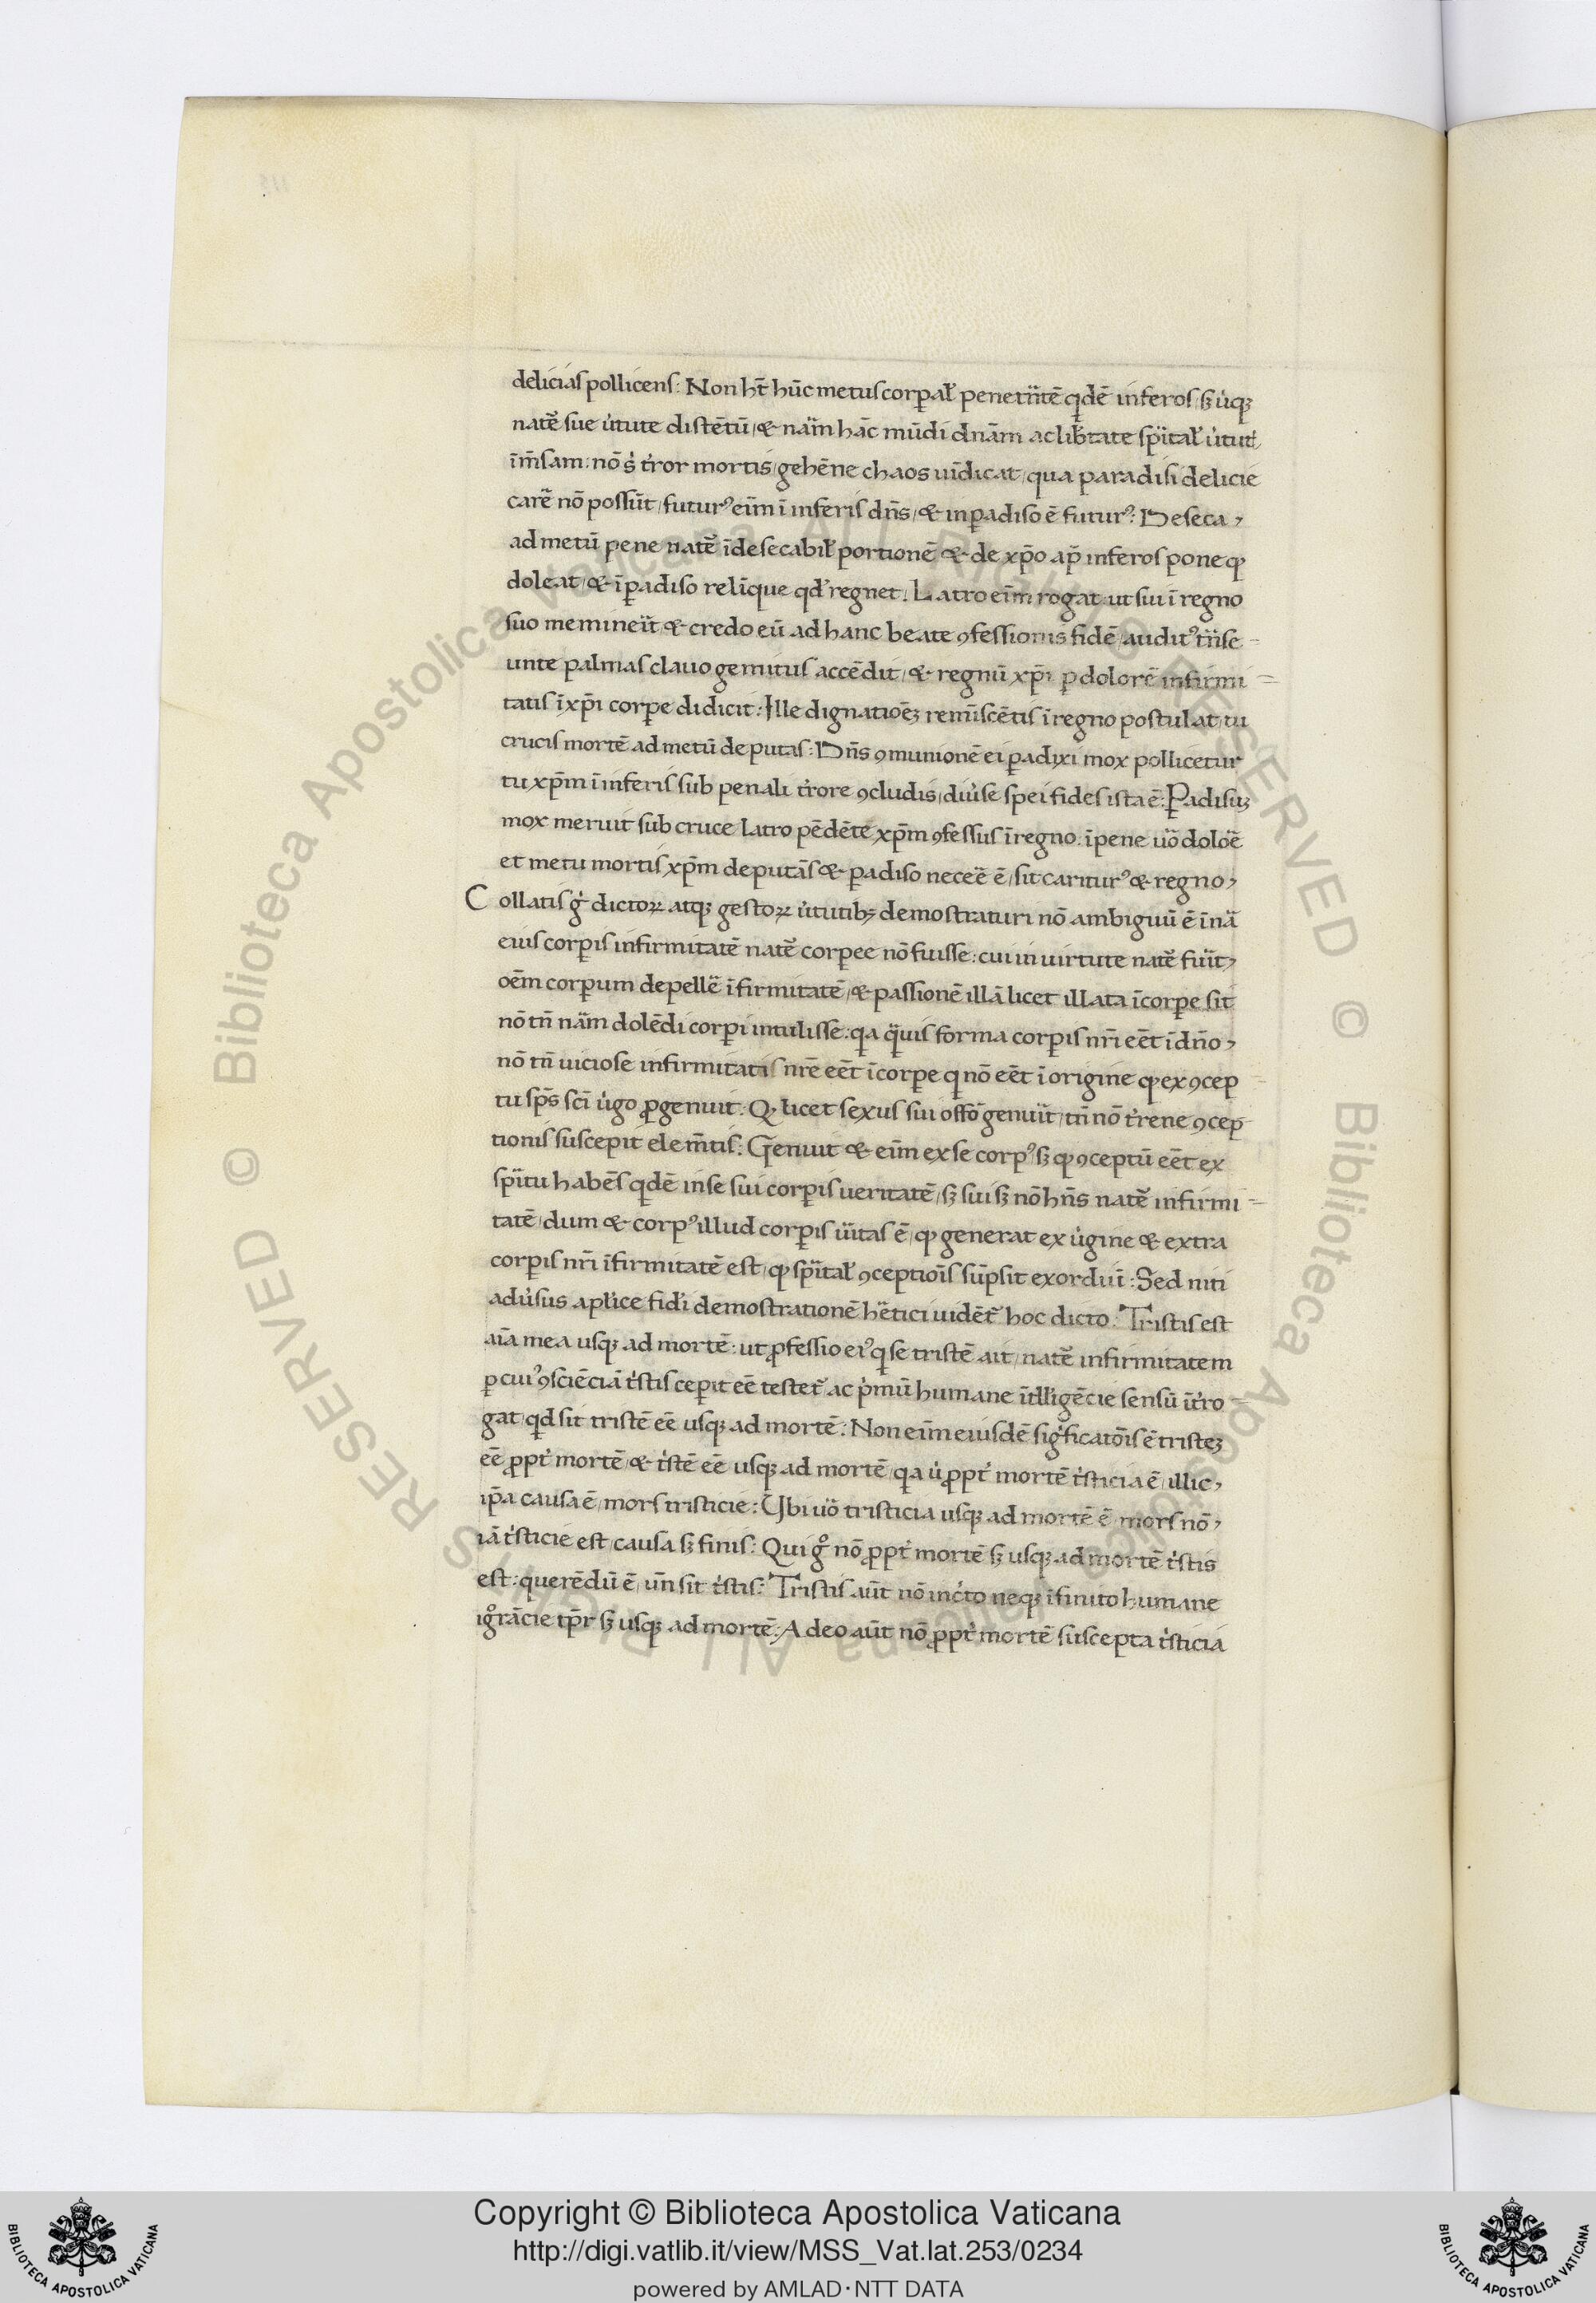 deliciaſ pollicenſ: Non ht̄ hūc metuſ corꝑal̵ penetrn̄tē qdē inferoſ / sꝫ ůqꝫ
natē̃ ſue ůtute diſtētū / & nãm hāc mūdi dnãm ac lib̵tate ſpĩtal̵ ůtuti
īm̄ſam: nō ſ̓ t̓ror mortis / gehēne chaos uīdicat / qua paradiſi delicie
carē̃ nō poſſūt / futurꝰ eīm ī inferiſ dn̄s / & in ꝑadiſo ē futurꝰ: Deſeca,
ad metū pene natē̃ īdeſecabil̵ portionē & de xp̄o ap̄ inferoſ pone qͦ
doleat / & ī ꝑadiſo relīque qd̓ regnet. Latro eīm rogat ut ſui ī regno
ſuo meminẽit & credo eū ad hanc beate ꝯfeſſionis fidē / auditꝰ trn̄ſe-
unte palmaſ clauo gemituſ accēdit / & regnū xp̄i ꝑ dolorē infirmi=
tatiſ ī xp̄i corꝑe didicit: Ille dignatiōēꝫ remīſcētis ī regno poſtulat / tu
cruciſ mortē ad metū deputaſ: Dn̄s ꝯmunionē ei ꝑadyxi mox pollicetur
tu xp̄m ī inferiſ ſub penali t̓rore ꝯcludis / diůſe ſpei fideſ iſta ē: Padiſuꝫ
mox meruit ſub cruce latro pēdētē xp̄m ꝯfeſſuſ ī regno. ī pene ůo dolōē
et metu mortiſ xp̄m deputāſ & ꝑadiſo necẽe ē / ſit cariturꝰ & regno,
Collatiſ g̓ dictoꝝ atqꝫ geſtoꝝ ůtutibꝫ demoſtraturi nō ambiguū ē ī nã
eiuſ corꝑis infirmitatē natē̃ corꝑee nō fuiſſe: cui in uirtute natē̃ fuīt,
oēm corꝑum depellẽ īfirmitatē / & paſſionē illā licet illata ī corꝑe ſit
nō tn̄ nãm dolēdi corꝑi intuliſſe: qa q̃uiſ forma corꝑis nr̄i eēt ī dn̄o,
nō tn̄ uicioſe infirmitatiſ nr̄e eēt ī corꝑe q nō eēt ī origine qͦ ex ꝯcep
tu ſp̄s ſcī ůgo ꝓgenuit: Qͦ licet ſexuſ ſui offō genuīt / tn̄ nō t̓rene ꝯcep
tioniſ ſuſcepit elem̄tiſ: Genuit & eīm ex ſe corpꝰ ſꝫ qͦ ꝯceptū eēt ex
ſpĩtu habēſ qdē in ſe ſui corꝑis ueritatē / ſꝫ ſui ſꝫ nō hn̄s natē̃ infirmi=
tatē / dum & corpꝰ illud corꝑis ůitaſ ē / qͦ generat ex ůgine & extra
corꝑis nr̄i īfirmitatē eſt / qͦ ſpĩtal̵ ꝯceptioīſ ſūpſit exorduī: Sed niti
adůſuſ apl̓ice fid̓i demoſtrationē hẽtici uidēt̃ hoc dicto: Triſtiſ eſt
aīa mea uſqꝫ ad mortē: ut ꝓfeſſio eiꝰ q ſe triſtē ait / natē̃ infirmitatem
ꝑ cuiꝰ ꝯſciēciā t̓ſtiſ ceꝑit eē teſtet̃ ac p̓mū humane ītll̓igēcie ſenſū īt̓ro=
gat / qd ſit triſtē eē uſqꝫ ad mortē: Non eīm eiuſdē ſig̓ficatōīs ē triſteꝫ
eē ꝓpt̓ mortē / & t̓ſtē eē uſqꝫ ad mortē / qa ů ꝓpt̓ mortē t̓ſticia ē / illic,
ip̄a cauſa ē / morſ triſticie: Ubi ůo triſticia uſqꝫ ad mortē ē / morſ nō,
iā t̓ſticie eſt / cauſa ſꝫ finiſ: Qui gͦ nō ꝓpt̓ mortē ſꝫ uſqꝫ ad mortē t̓ſtis
eſt: querēdū ē / un̄ ſit t̓ſtiſ: Triſtiſ aūt nō inc̓to neqꝫ īfinito humane
igͦrācie tp̄r ſꝫ uſqꝫ ad mortē: Adeo aūt nō ꝓpt̓ mortē ſuſcepta t̓ſticia
© Biblioteca Apostolica Vaticana ALL RIGHTS RESERVED
Copyright © Biblioteca Apostolica Vaticana
http://digi.vatlib.it/view/MSS_Vat.lat.253/0234
powered by AMLAD·NTT DATA
BIBLIOTECA APOSTOLICA VATICANA
BIBLIOTECA APOSTOLICA VATICANA